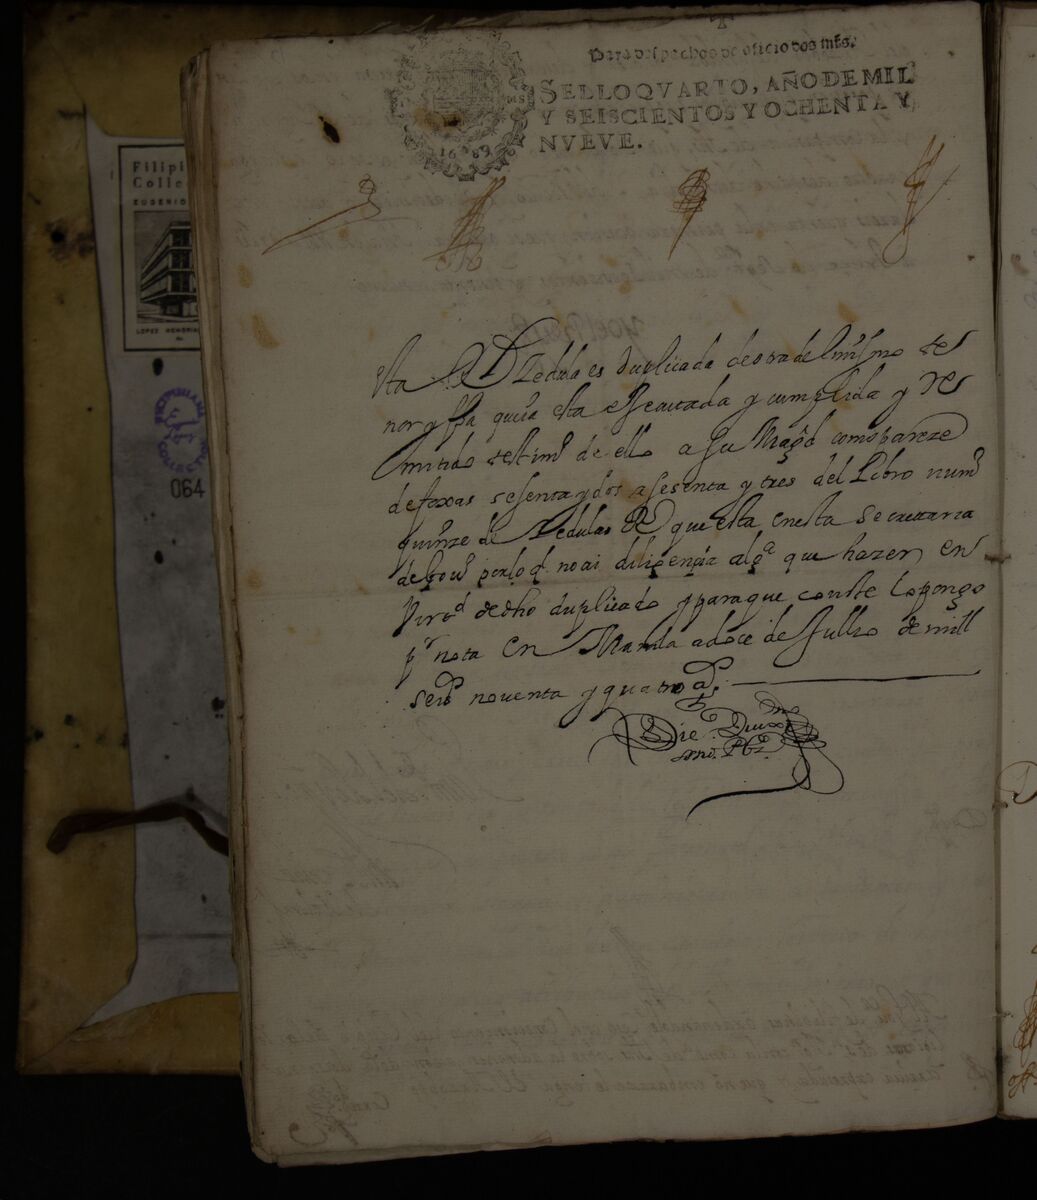 Para despachos de oficio dos mrs.
SELLO QVARTO, AÑO DE MIL
Y SEISCIENTOS Y OCHENTA Y
NVEVE.
1689
Filipi
Colle
EUGENIO
LOPEZ MEMORIAL
064
sta Rl Zedula es duplicada de otra del mismo te
nor y fha que ia esta executada y cumplida y re
mitido testimo de ello a su Magd como pareze
de foxas sesenta y dos a sesenta y tres del Libro numo
quinze de Zedulas Rs que esta en esta secretaria
de govo por lo q no ai diligencia alga que hazer en
virtd de dho duplicado y para que conste lo pongo
pr nota en Manila a doce de Jullio de mill
seis noventa y quatro as